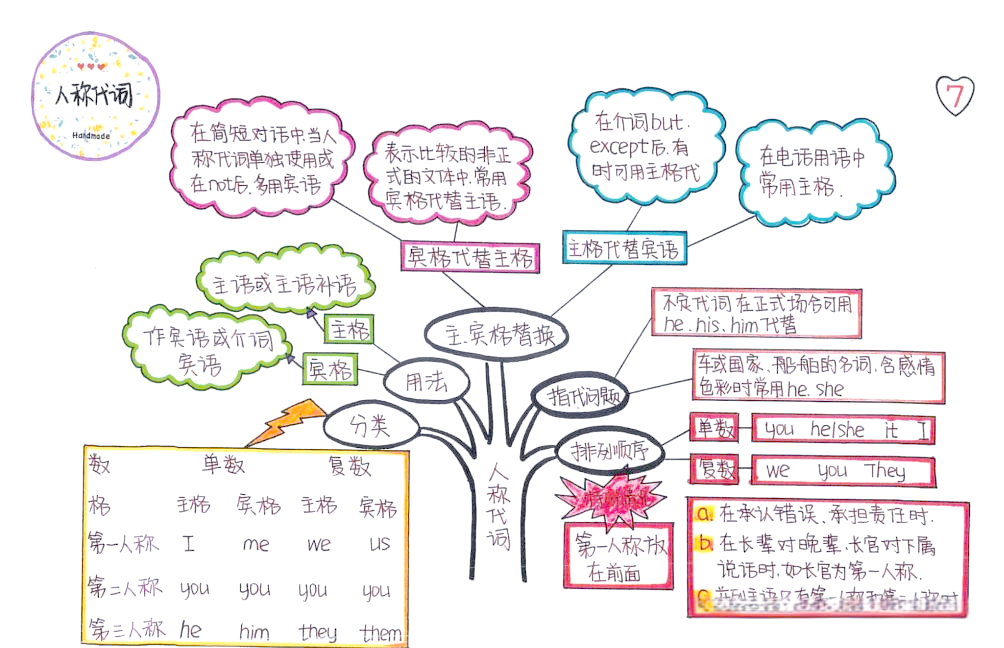 人称代词
Handmade
7
在简短对话中,当人
称代词单独使用或
在not后,多用宾语
表示比较的非正
式的文体中,常用
宾格代替主语.
在介词but.
except后,有
时可用主格代
在电话用语中
常用主格.
宾格代替主格
主格代替宾语
主语或主语补语
主格
作宾语或介词
宾语
宾格
主.宾格替换
用法
分类
指代问题
不定代词在正式场合可用
he.his.him代替
车或国家、船舶的名词,含感情
色彩时常用he.she
排列顺序
单数
you he/she it I
复数
we you They
第一人称放
在前面
a. 在承认错误、承担责任时.
b. 在长辈对晚辈,长官对下属
说话时,如长官为第一人称.
人称代词
数 单数 复数
格 主格 宾格 主格 宾格
第一人称 I me we us
第二人称 you you you you
第三人称 he him they them